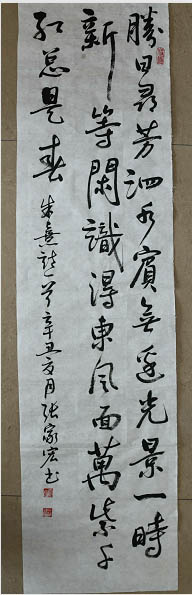 勝日尋芳泗水賓無邊光景一時
新等閑識得東風面萬紫千
紅總是春
朱熹詩一首辛丑夏月張家宏書